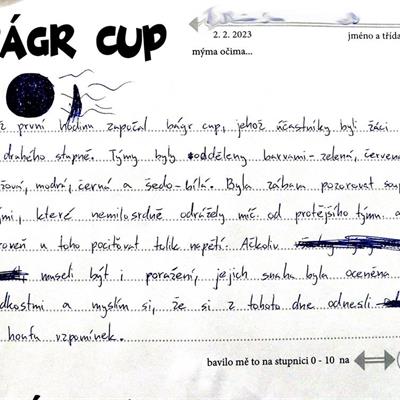 ÁGR CUP
2. 2. 2023
jméno a třída
mýma očima...
první hodinu započal bágr cup, jehož účastníky byli žáci
druhého stupně. Týmy byly odděleny barvami - zelená, červená
modrá, černá a šedo-bílá. Byla zábava pozorovat
které nemilosrdně odrážely míč od protějšího týmu a
u toho pociťovat tolik napětí. Ačkoliv
museli být i poražení, jejich snaha byla oceněna
a myslím si, že si z tohoto dne odnesli
houfu vzpomínek.
bavilo mě to na stupnici 0 - 10 na